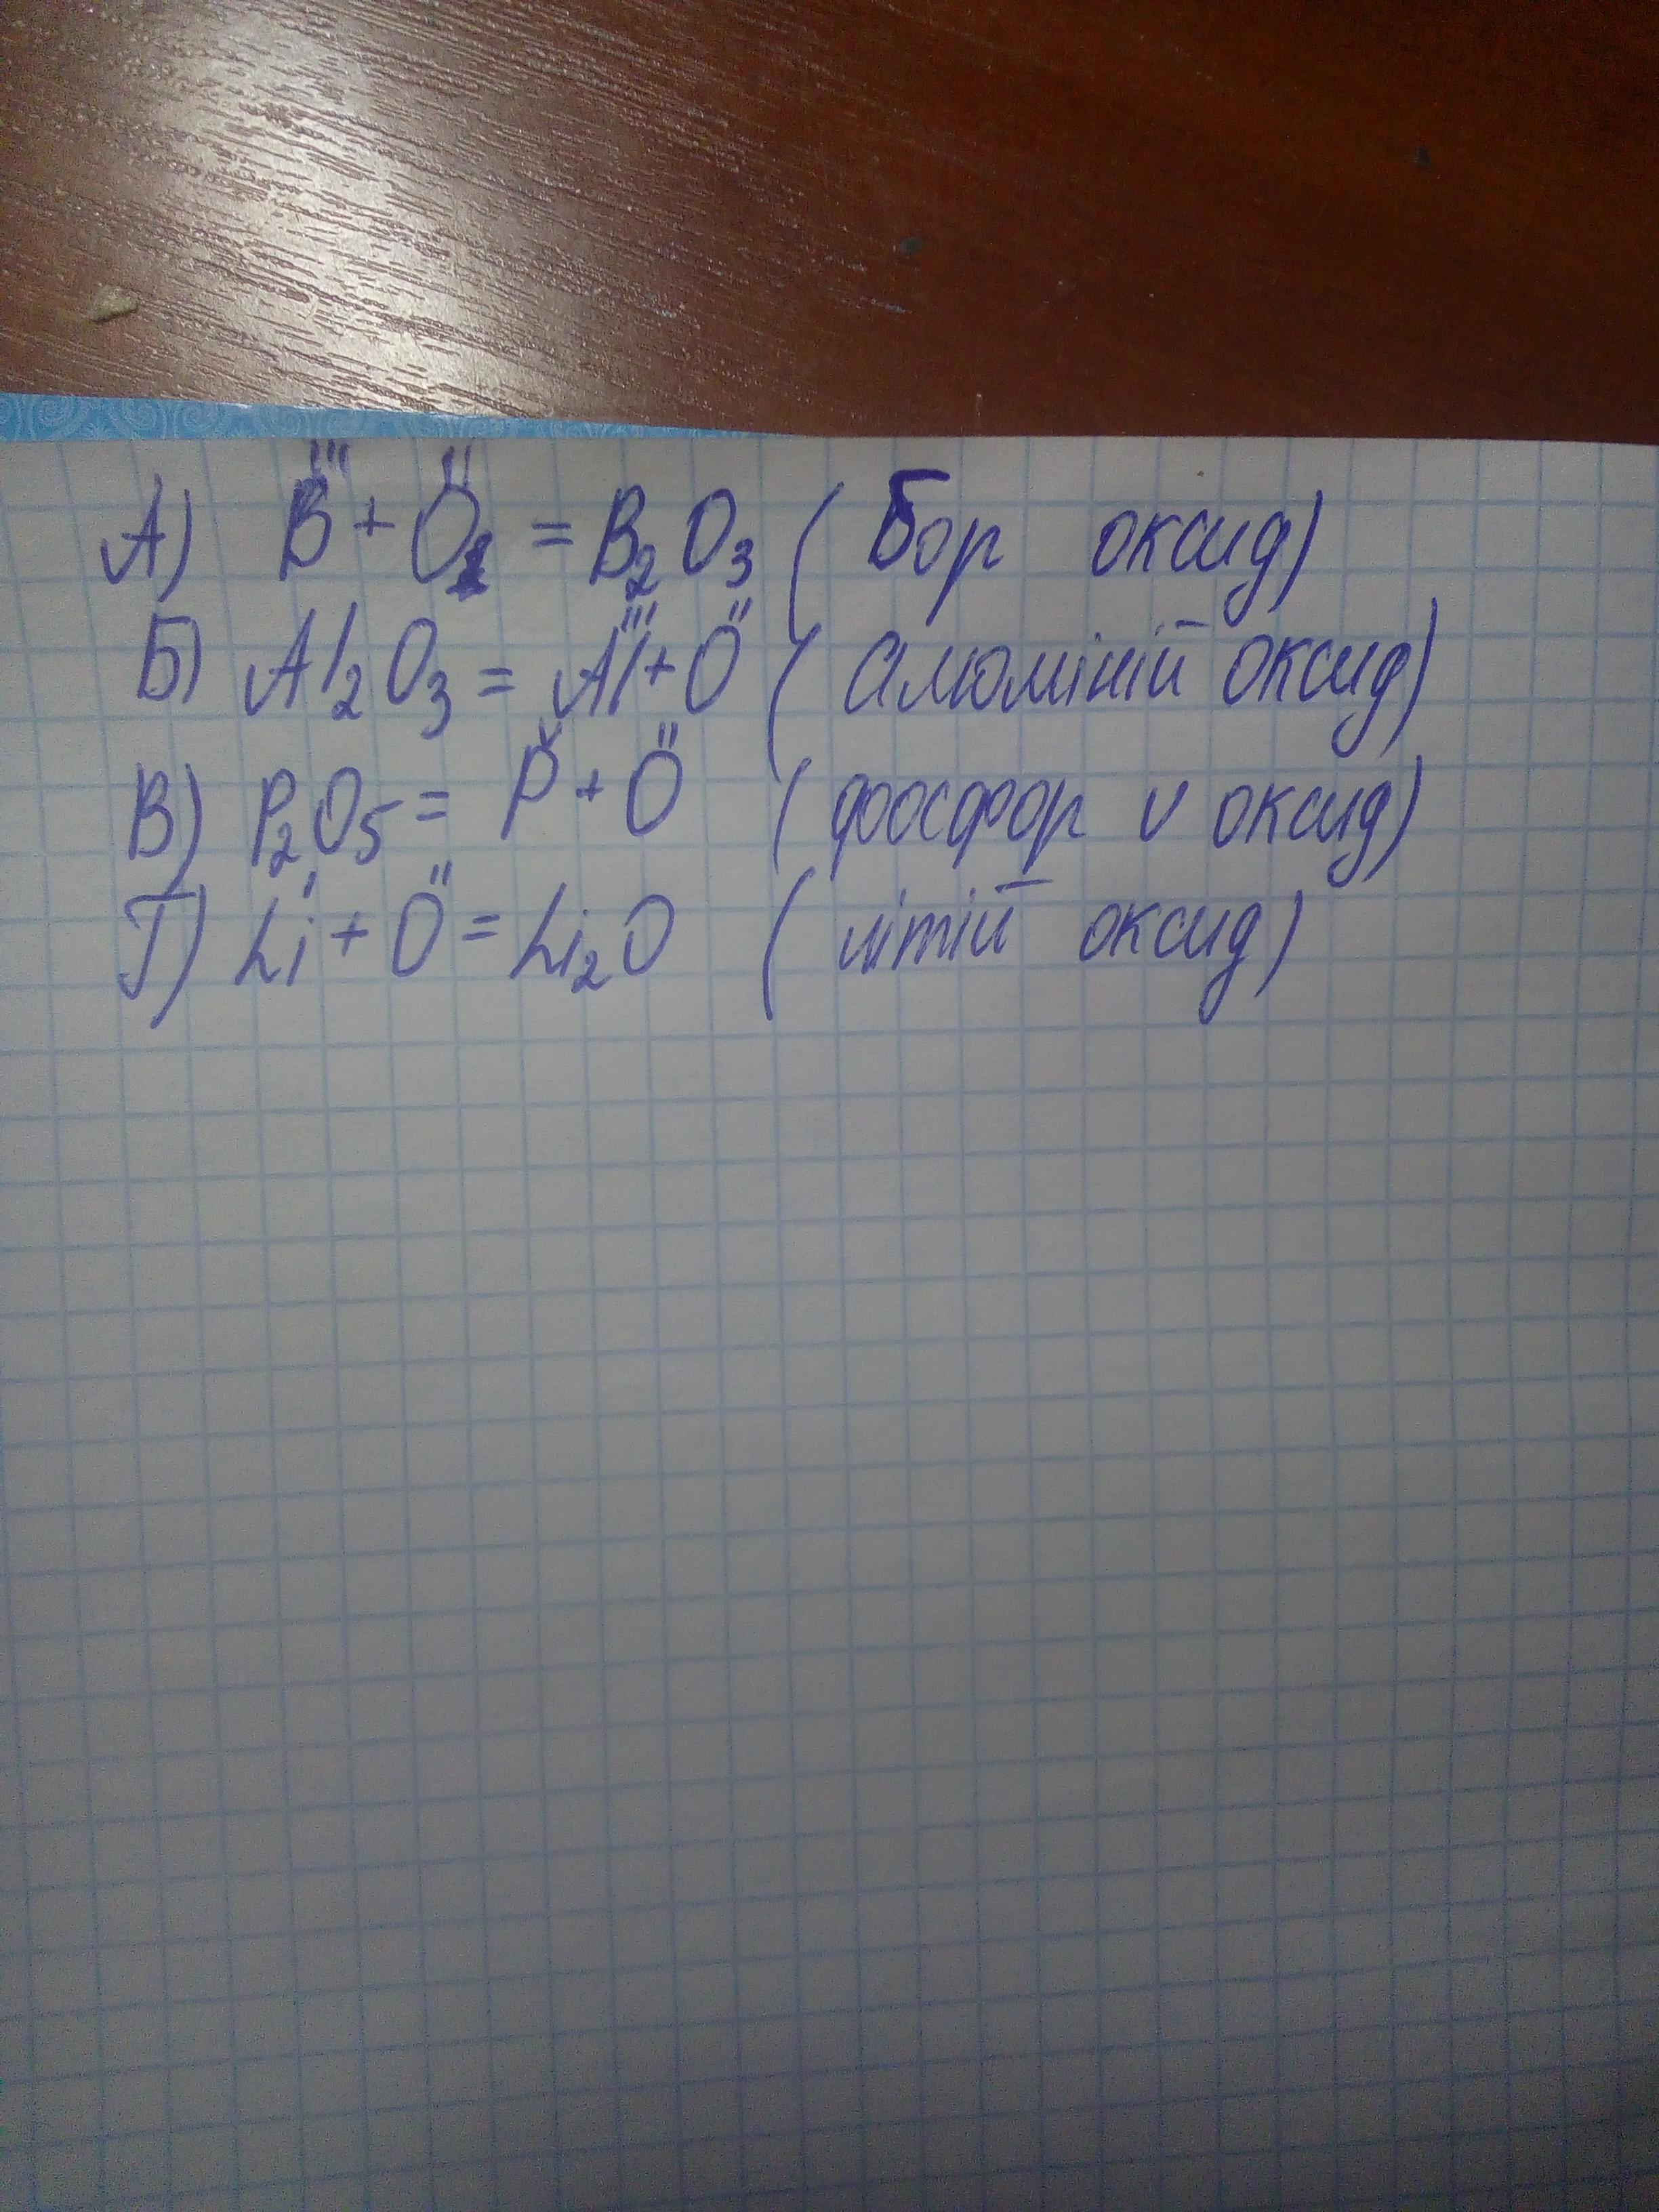 А) B^III + O^II = B₂O₃ (Бор оксид)
Б) Al₂O₃ = Al^III + O^II (алюміній оксид)
В) P₂O₅ = P^V + O^II (фосфор v оксид)
Г) Li^I + O^II = Li₂O (літій оксид)